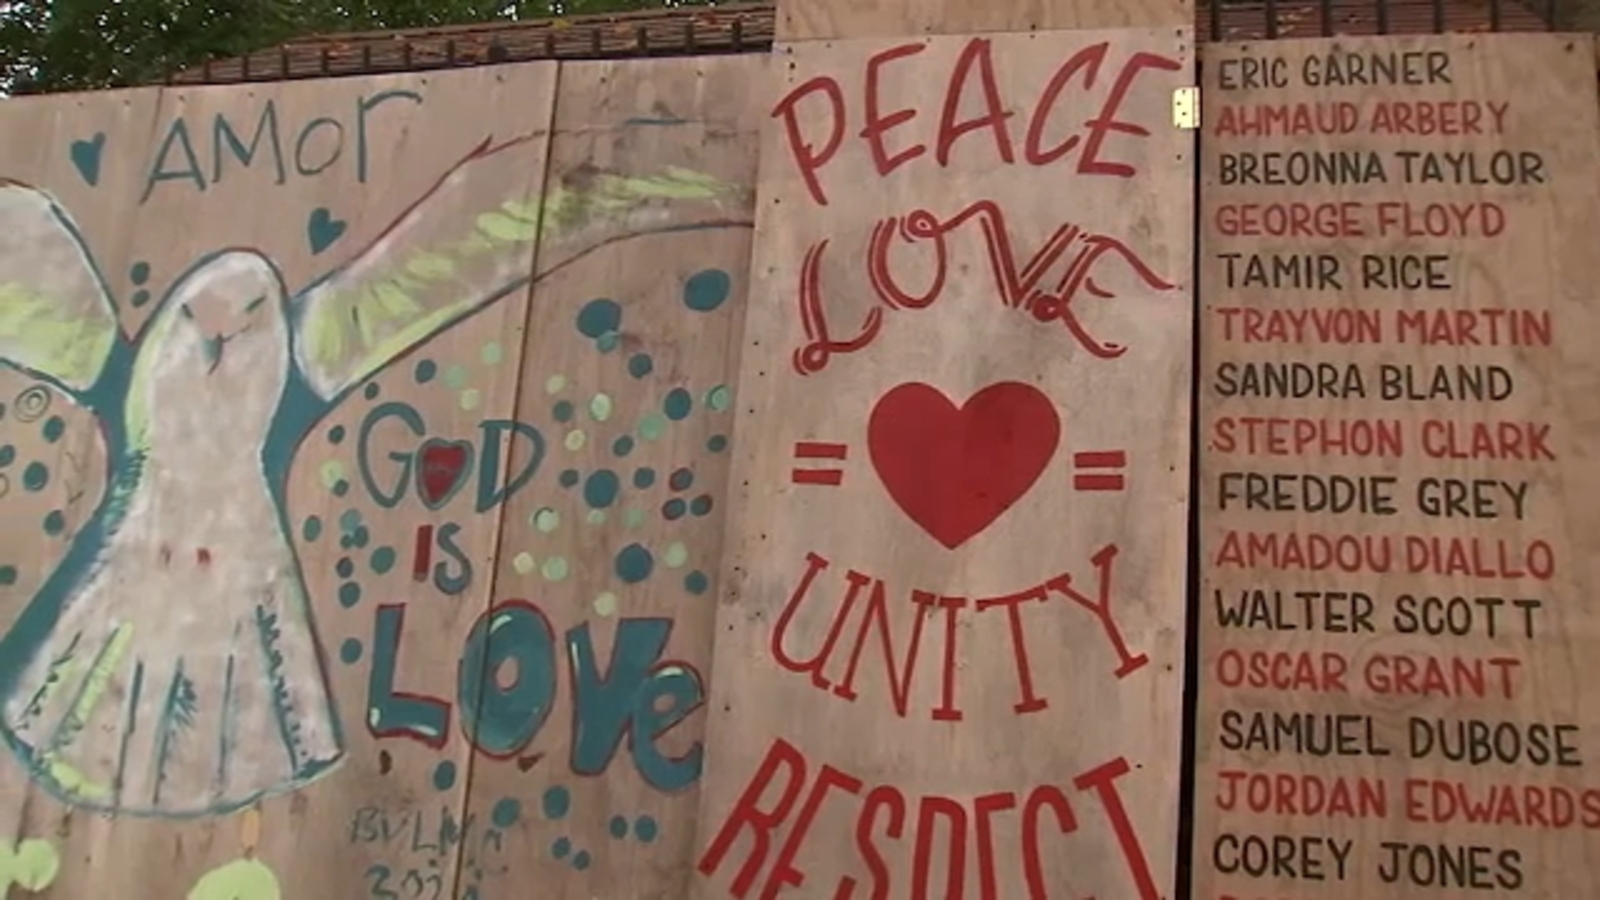 AMor
GOD
IS
LOVe
PEACE
LOVE
= =
UNITY
RESPECT
ERIC GARNER
AHMAUD ARBERY
BREONNA TAYLOR
GEORGE FLOYD
TAMIR RICE
TRAYVON MARTIN
SANDRA BLAND
STEPHON CLARK
FREDDIE GREY
AMADOU DIALLO
WALTER SCOTT
OSCAR GRANT
SAMUEL DUBOSE
JORDAN EDWARDS
COREY JONES